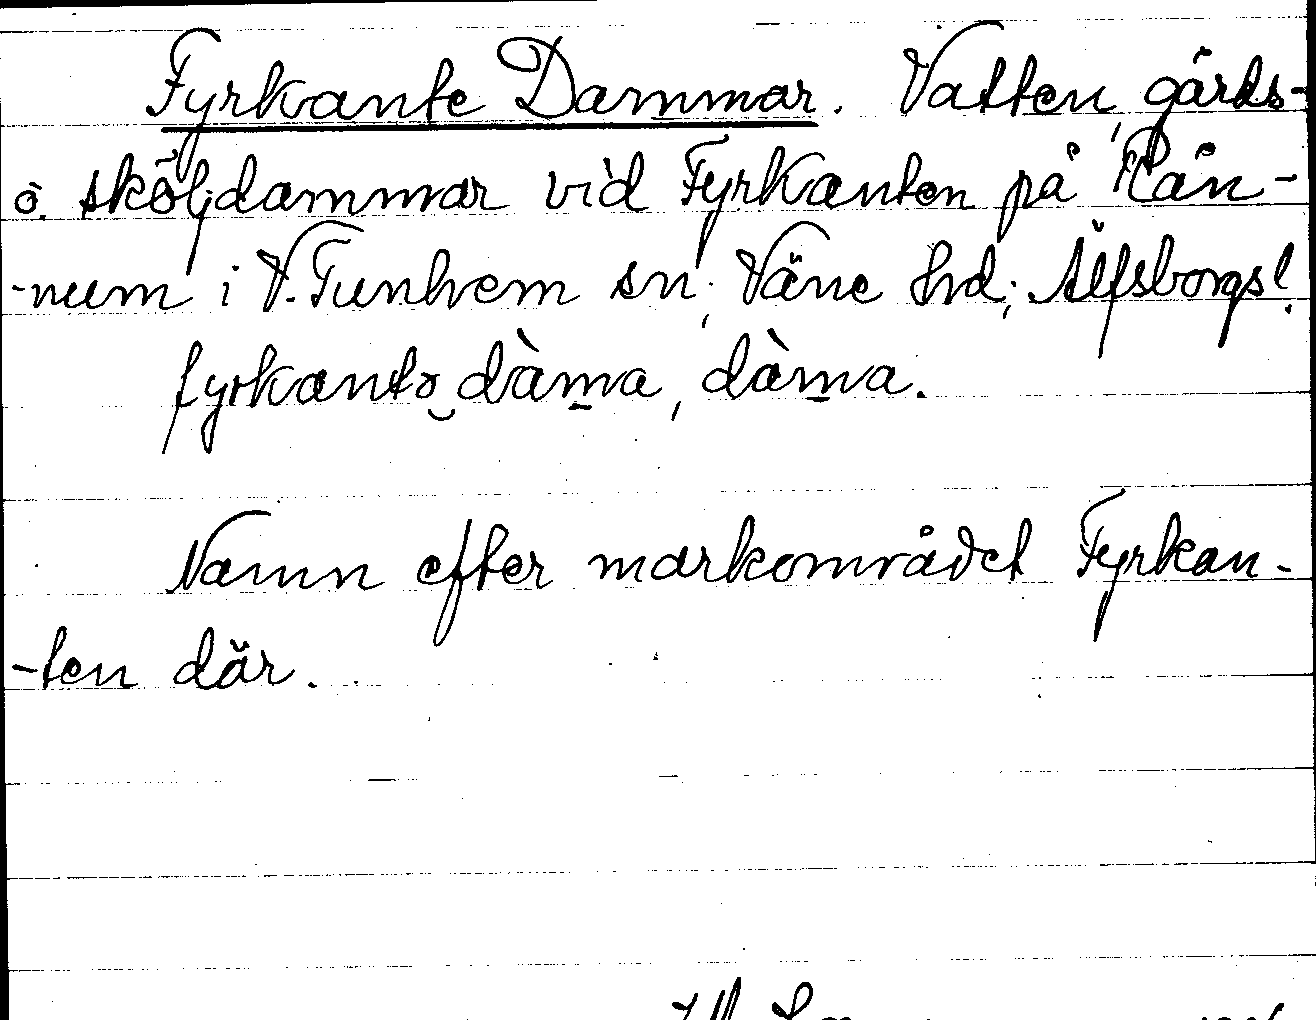 Fyrkante Dammar. Vatten, gårds-
o. sköljdammar vid Fyrkanten på Rån-
-num i V. Tunhem sn, Väne hd; Älfsborgs l.
fyrkantə dàm̲a, dàm̲a.
Namn efter markområdet Fyrkan-
-ten där.